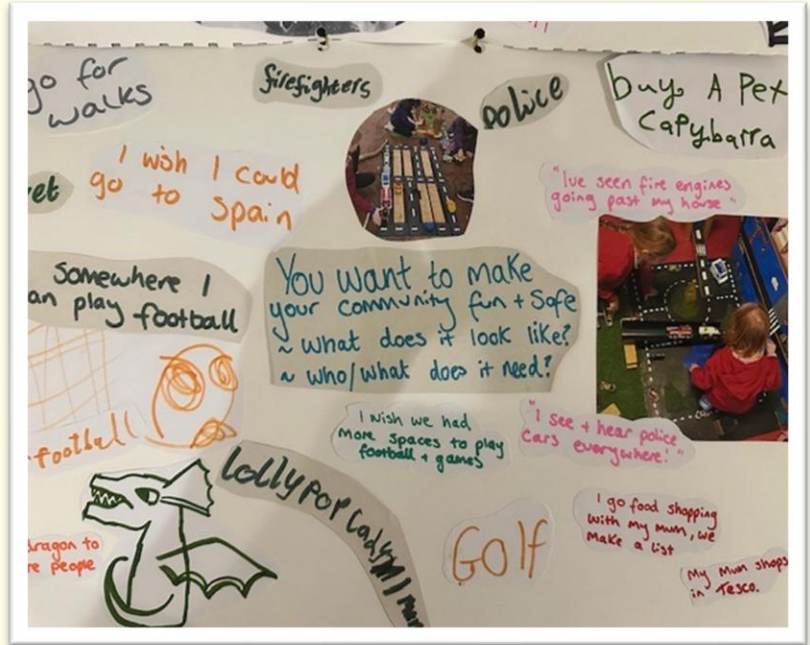 go for
walks
firefighters
police
buy A Pet
Capybarra
I wish I could
go to Spain
"Ive seen fire engines
going past my house"
Somewhere I
an play football
You want to make
your community fun + safe
~ what does it look like?
~ who/what does it need?
football
I wish we had
more spaces to play
football + games
"I see + hear police
cars everywhere!"
lollypop lady/man
Golf
I go food shopping
with my mum, we
make a list
dragon to
re people
My Mum shops
in Tesco.